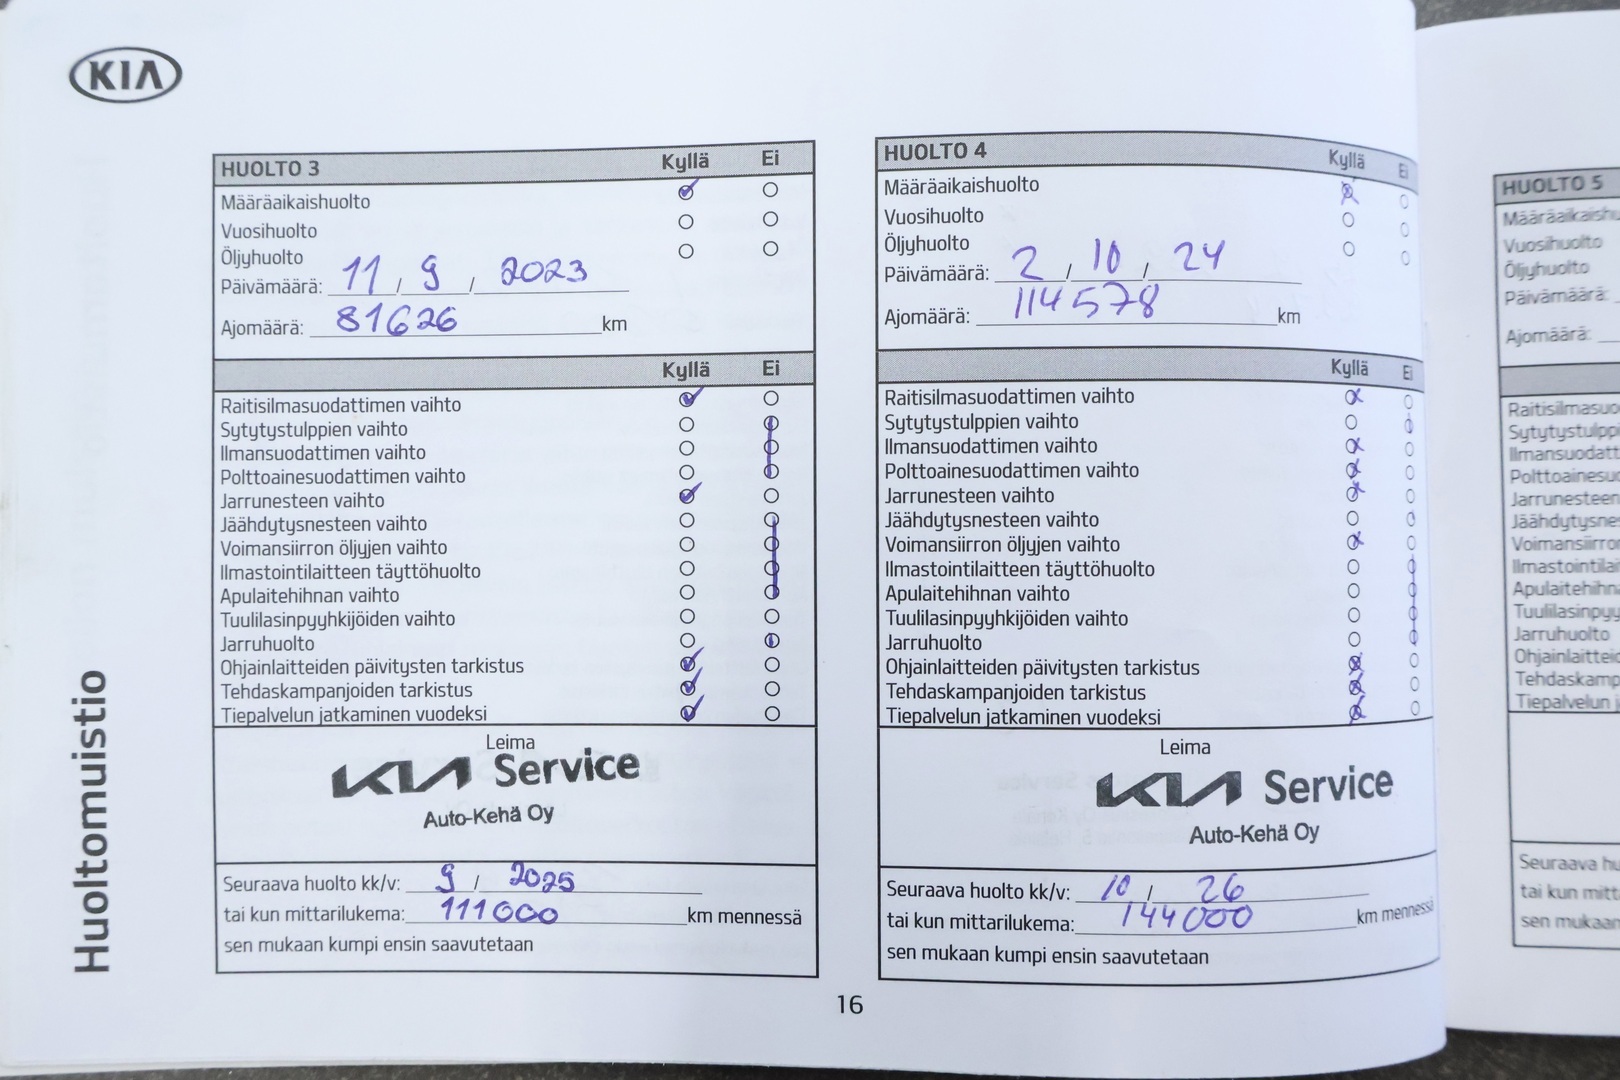 KIA
HUOLTO 3 Kyllä Ei
Määräaikaishuolto
Vuosihuolto
Öljyhuolto
Päivämäärä: 11 / 9 / 2023
Ajomäärä: 81626 km
Kyllä Ei
Raitisilmasuodattimen vaihto
Sytytystulppien vaihto
Ilmansuodattimen vaihto
Polttoainesuodattimen vaihto
Jarrunesteen vaihto
Jäähdytysnesteen vaihto
Voimansiirron öljyjen vaihto
Ilmastointilaitteen täyttöhuolto
Apulaitehihnan vaihto
Tuulilasinpyyhkijöiden vaihto
Jarruhuolto
Ohjainlaitteiden päivitysten tarkistus
Tehdaskampanjoiden tarkistus
Tiepalvelun jatkaminen vuodeksi
Leima
KIA Service
Auto-Kehä Oy
Seuraava huolto kk/v: 9 / 2025
tai kun mittarilukema: 111000 km mennessä
sen mukaan kumpi ensin saavutetaan
HUOLTO 4 Kyllä Ei
Määräaikaishuolto
Vuosihuolto
Öljyhuolto
Päivämäärä: 2 / 10 / 24
Ajomäärä: 114578 km
Kyllä Ei
Raitisilmasuodattimen vaihto
Sytytystulppien vaihto
Ilmansuodattimen vaihto
Polttoainesuodattimen vaihto
Jarrunesteen vaihto
Jäähdytysnesteen vaihto
Voimansiirron öljyjen vaihto
Ilmastointilaitteen täyttöhuolto
Apulaitehihnan vaihto
Tuulilasinpyyhkijöiden vaihto
Jarruhuolto
Ohjainlaitteiden päivitysten tarkistus
Tehdaskampanjoiden tarkistus
Tiepalvelun jatkaminen vuodeksi
Leima
KIA Service
Auto-Kehä Oy
Seuraava huolto kk/v: 10 / 26
tai kun mittarilukema: 144000 km mennessä
sen mukaan kumpi ensin saavutetaan
HUOLTO 5
Vuosihuolto
Öljyhuolto
Päivämäärä:
Ajomäärä:
Jarruhuolto
Seuraava
tai kun
sen
Huoltomuistio
16